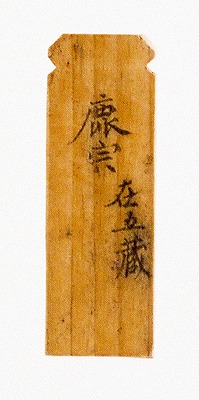 鹿宗
在五藏